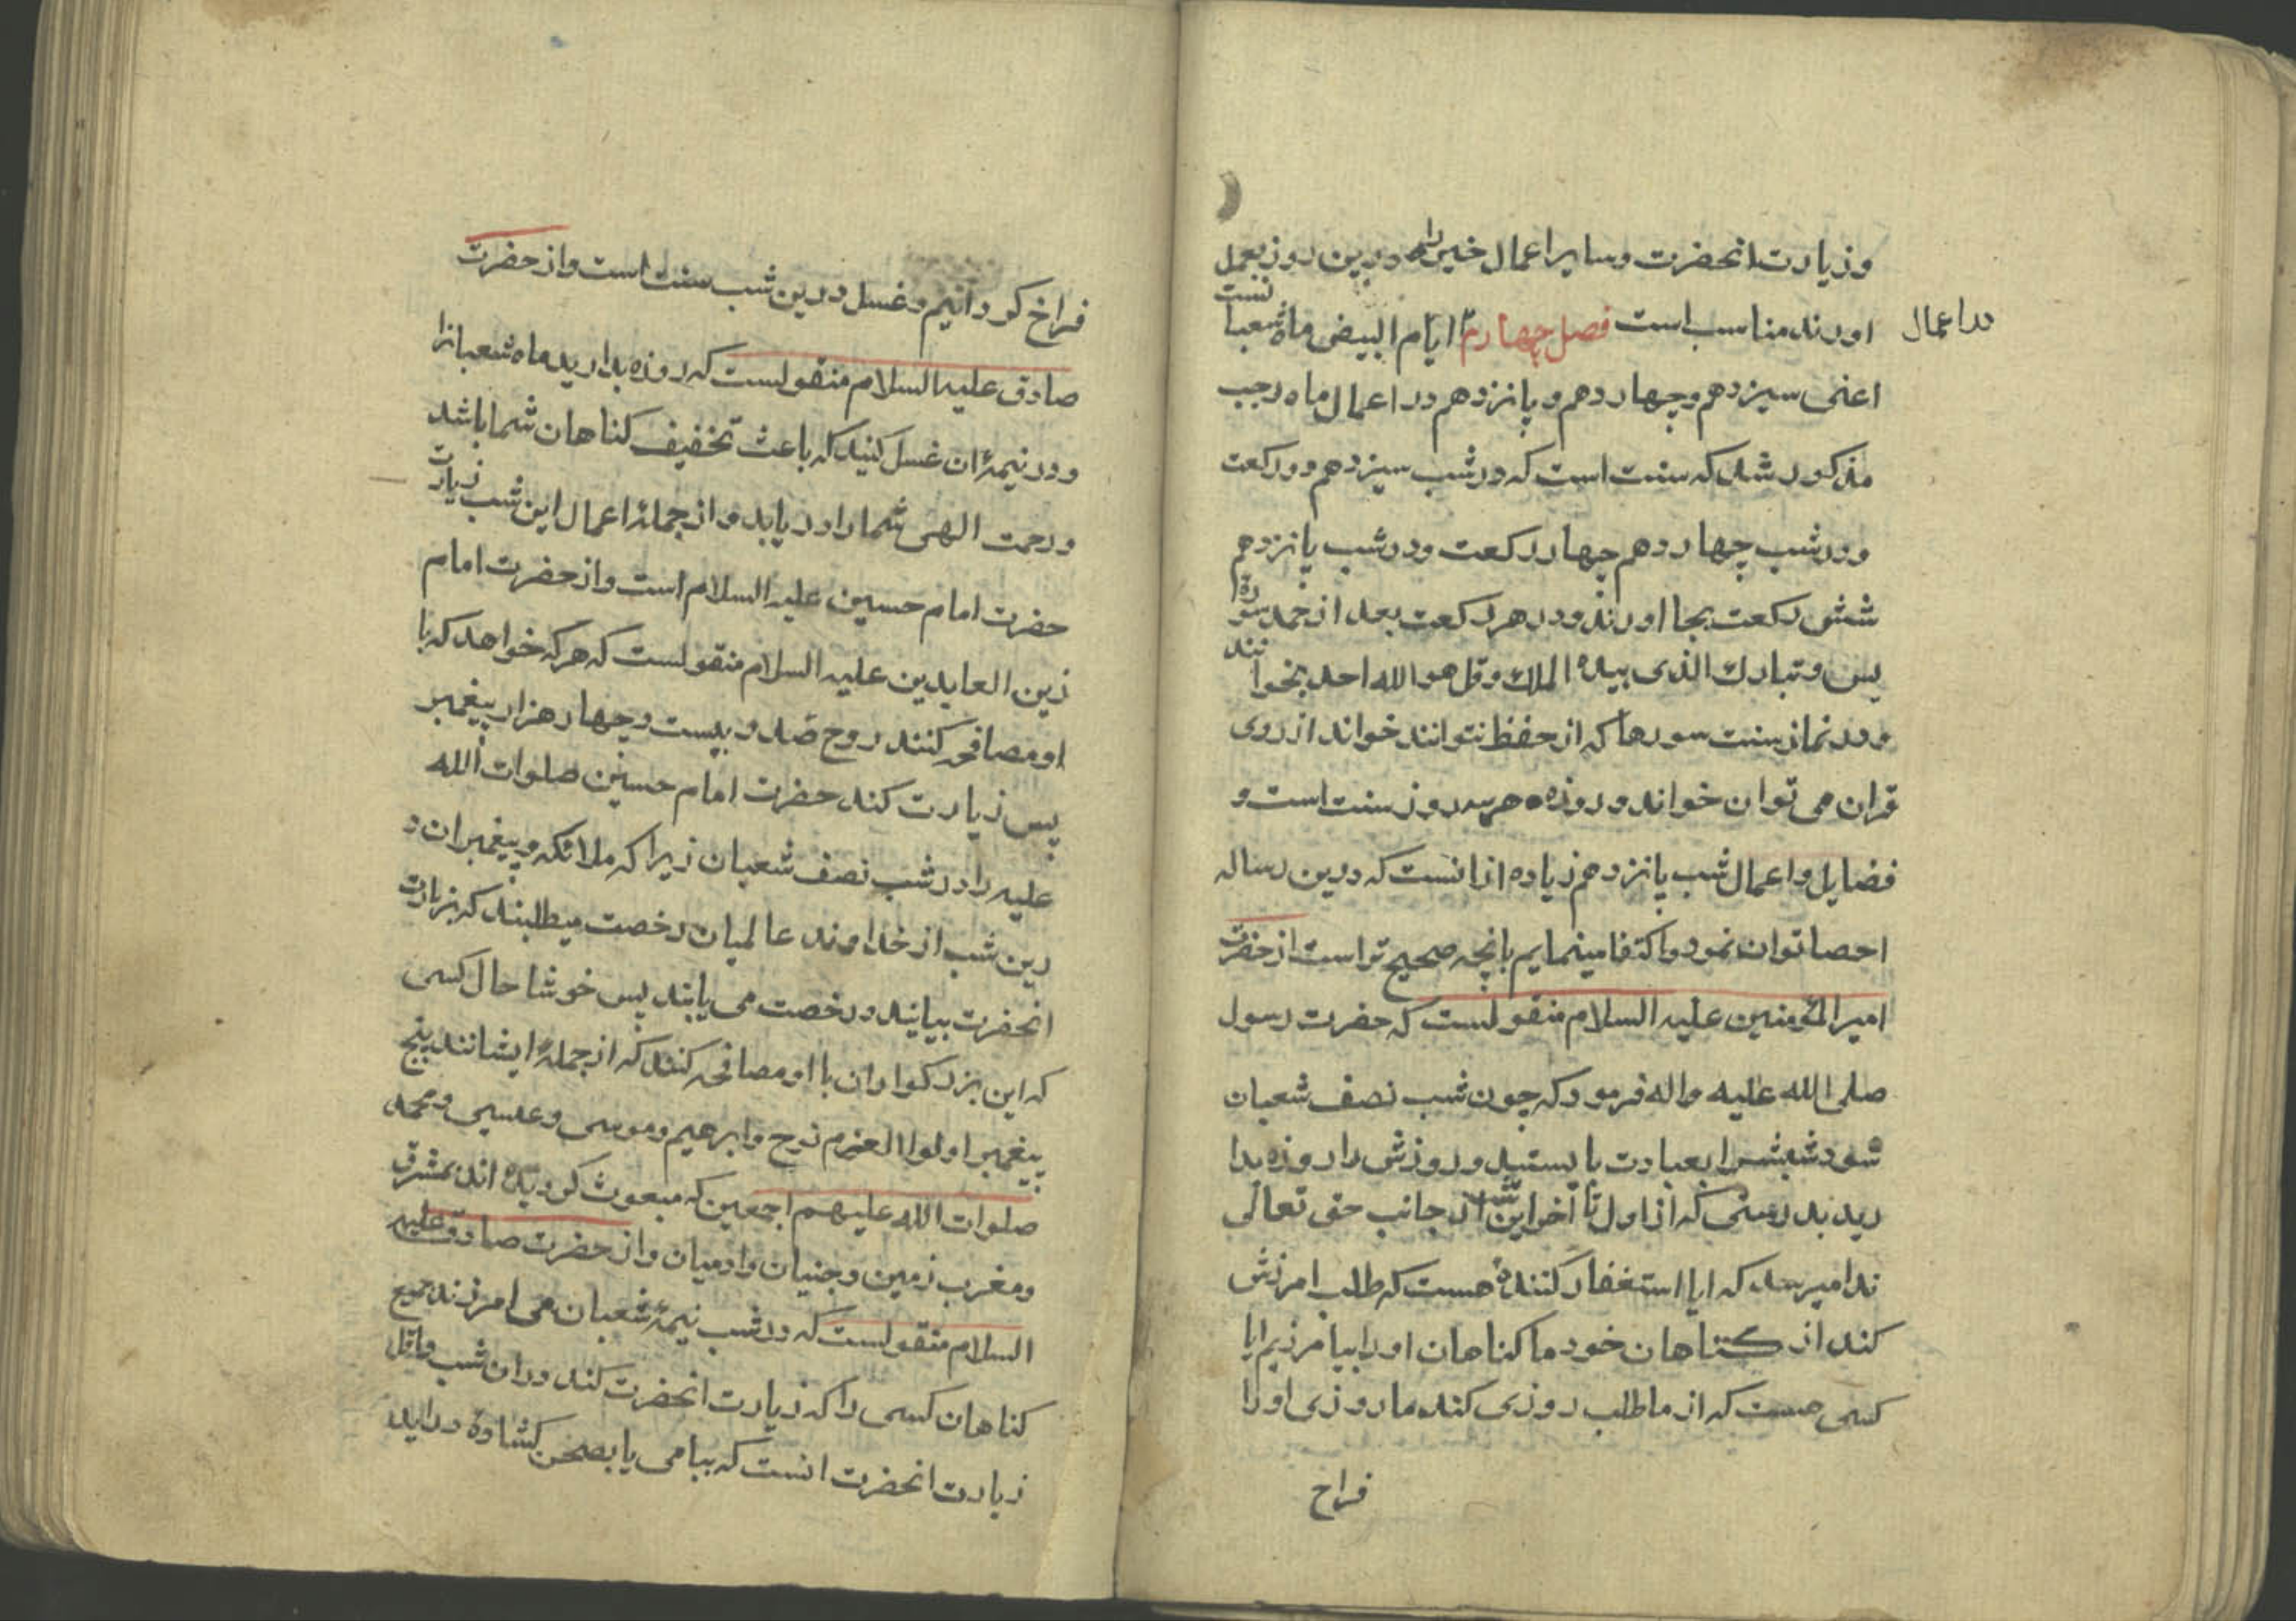 وزیارت انحضرت وسایر اعمال خیر را درین روز بعمل
اورند مناسب است فصل چهارم ایام البیض ماه شعبا نست
در اعمال
اعنی سیزدهم وچهاردهم و پانزدهم در اعمال ماه رجب
مذکور شد که سنت است که در شب سیزدهم دو رکعت
ودر شب چهاردهم چهار رکعت ودر شب پانزدهم
شش رکعت بجا اورند ودر هر رکعت بعد از حمد سوره
یس وتبارك الذی بیده الملك وقل هو الله احد بخوا نند
ودر نماز سنت سورها که از حفظ نتوانند خواند از روی
قران می توان خواند وروزه هر سه روز سنت است و
فضایل واعمال شب پانزدهم زیاده ازانست که درین رساله
احصا توان نمود واکتفا مینمایم بانچه صحیح تر است از حضرت
امیر المؤمنین علیه السلام منقولست که حضرت رسول
صلی الله علیه واله فرمود که چون شب نصف شعبان
شود شبش را بعبادت بایستید وروزش را روزه بدا
رید بدرستی که از اول تا آخر این شب از جانب حق تعالی
ندا میرسد که ایا استغفار کنندهٔ هست که طلب امرزش
کند از کناهان خود ما کناهان اورا بیامرزیم ایا
کسی هست که از ما طلب روزی کند ما روزی اورا
فراخ
فراخ کردانیم وغسل درین شب سنت است واز حضرت
صادق علیه السلام منقولست که روزه بدارید ماه شعبانرا
ودر نیمهٔ ان غسل کنید که باعث تخفیف کناهان شما باشد
ورحمت الهی شما را دریابد واز جملهٔ اعمال این شب زیارت
حضرت امام حسین علیه السلام است واز حضرت امام
زین العابدین علیه السلام منقولست که هر که خواهد که با
او مصافحه کنند روح صد وبیست وچهار هزار پیغمبر
پس زیارت کند حضرت امام حسین صلوات الله
علیه را در شب نصف شعبان زیرا که ملائکه وپیغمبران د
رین شب از خداوند عالمیان رخصت میطلبند که بزیارت
انحضرت بیایند ورخصت می یابند پس خوشا حال کسی
که این بزرکواران با او مصافحه کنند که از جملهٔ ایشانند پنج
پیغمبر اولوا العزم نوح وابرهیم وموسی وعیسی ومحمد
صلوات الله علیهم اجمعین که مبعوث کردیده اند بمشرق
ومغرب زمین وجنیان وادمیان واز حضرت صادق علیه
السلام منقولست که در شب نیمهٔ شعبان می امرزند جمیع
کناهان کسی را که زیارت انحضرت کند دران شب واقل
زیارت انحضرت انست که ببامی یا بصحن کشادهٔ دراید